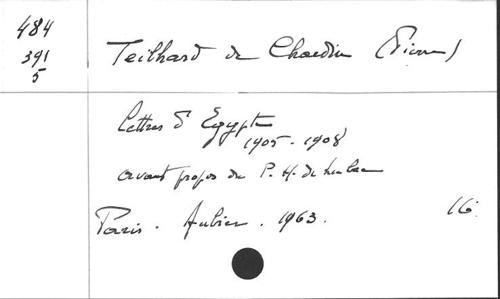 484
391
5
Teilhard de Chardin (Pierre)
Lettres d'Egypte
1905-1908
avant propos du P. H. de Lubac
Paris. Aubier. 1963.
16